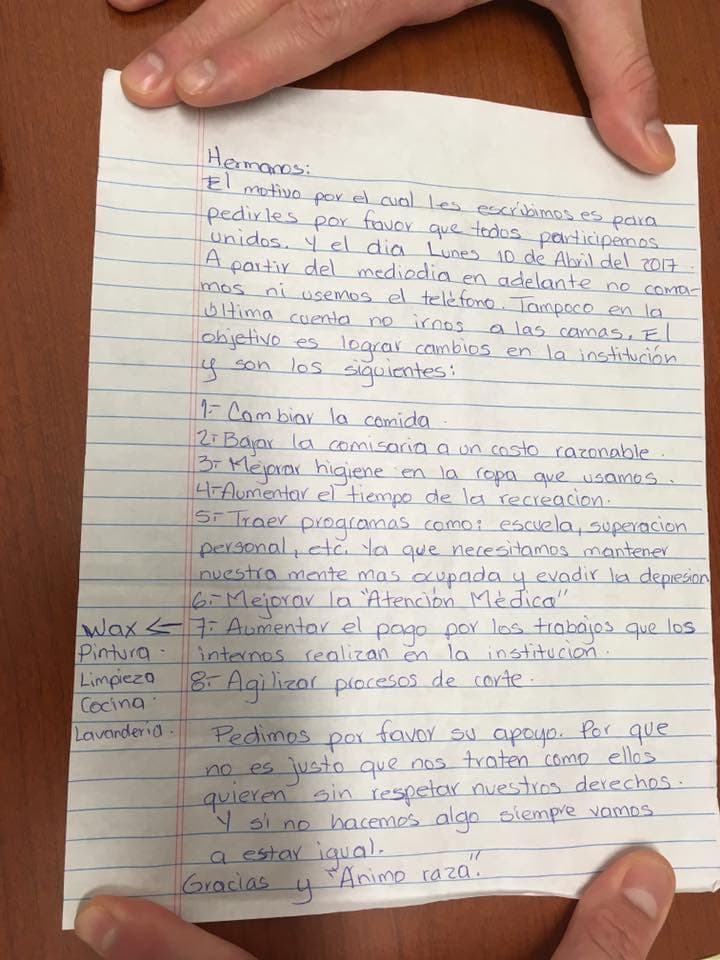 Hermanos:
El motivo por el cual les escribimos es para
pedirles por favor que todos participemos
unidos. Y el dia Lunes 10 de Abril del 2017.
A partir del mediodia en adelante no coma-
mos ni usemos el teléfono. Tampoco en la
última cuenta no irnos a las camas. El
objetivo es lograr cambios en la institución
y son los siguientes:
1.- Cambiar la comida.
2.- Bajar la comisaria a un costo razonable.
3.- Mejorar higiene en la ropa que usamos.
4.- Aumentar el tiempo de la recreacion.
5.- Traer programas como: escuela, superacion
personal, etc. Ya que necesitamos mantener
nuestra mente mas ocupada y evadir la depresion
6.- Mejorar la "Atención Médica"
Wax ← 7.- Aumentar el pago por los trabajos que los
Pintura. internos realizan en la institucion.
Limpieza 8.- Agilizar procesos de corte.
Cocina.
Lavanderia. Pedimos por favor su apoyo. Por que
no es justo que nos traten como ellos
quieren sin respetar nuestros derechos.
Y si no hacemos algo siempre vamos
a estar igual.
Gracias y "Animo raza".